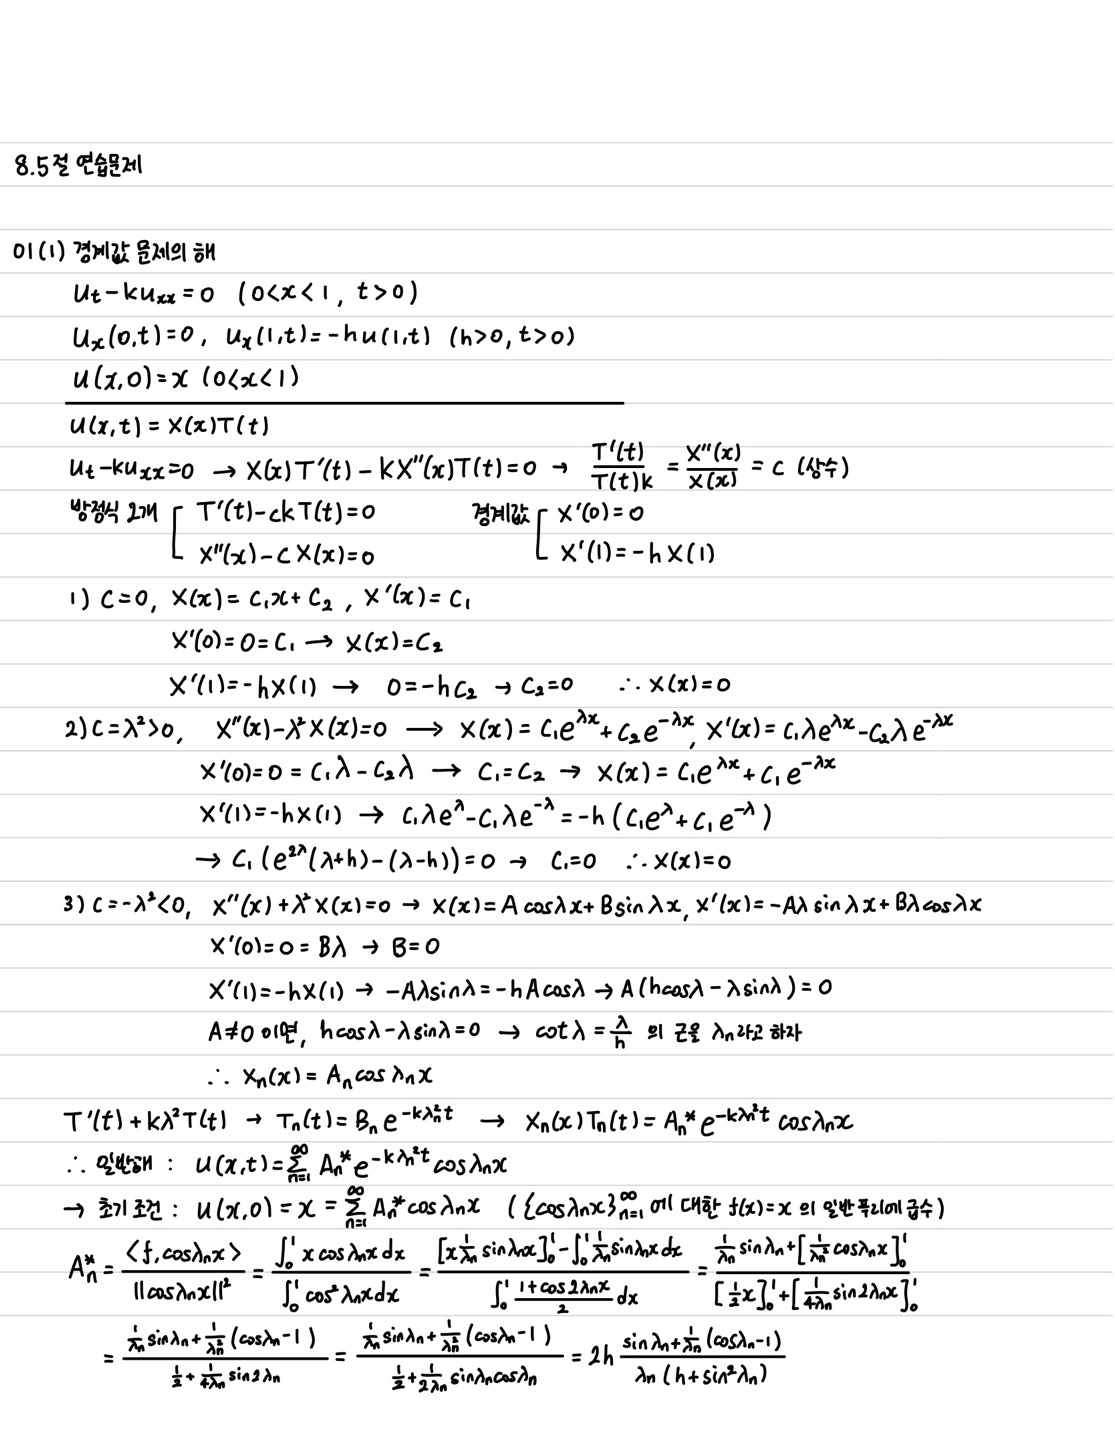 8.5절 연습문제
01(1) 경계값 문제의 해
u_t - ku_xx = 0 (0<x<1, t>0)
u_x(0,t)=0, u_x(1,t)=-hu(1,t) (h>0, t>0)
u(x,0)=x (0<x<1)
u(x,t) = X(x)T(t)
u_t-ku_xx=0 → X(x)T'(t) - kX''(x)T(t)=0 → T'(t)/T(t)k = X''(x)/X(x) = c (상수)
방정식 2개 [ T'(t)-ckT(t)=0 경계값 [ X'(0)=0
X''(x)-cX(x)=0 X'(1)=-hX(1)
1) c=0, X(x)=c₁x+c₂, X'(x)=c₁
X'(0)=0=c₁ → X(x)=c₂
X'(1)=-hX(1) → 0=-hc₂ → c₂=0 ∴X(x)=0
2) c=λ²>0, X''(x)-λ²X(x)=0 ⟶ X(x)=c₁e^{λx}+c₂e^{-λx}, X'(x)=c₁λe^{λx}-c₂λe^{-λx}
X'(0)=0=c₁λ-c₂λ → c₁=c₂ → X(x)=c₁e^{λx}+c₁e^{-λx}
X'(1)=-hX(1) → c₁λe^{λ}-c₁λe^{-λ}=-h(c₁e^{λ}+c₁e^{-λ})
→ c₁(e^{2λ}(λ+h)-(λ-h))=0 → c₁=0 ∴X(x)=0
3) c=-λ²<0, X''(x)+λ²X(x)=0 → X(x)=A cosλx+B sinλx, X'(x)=-Aλ sinλx+Bλ cosλx
X'(0)=0=Bλ → B=0
X'(1)=-hX(1) → -Aλsinλ=-hAcosλ → A(hcosλ-λsinλ)=0
A≠0 이면, hcosλ-λsinλ=0 → cotλ=λ/h 의 근을 λ_n라고 하자
∴ X_n(x)=A_n cosλ_n x
T'(t)+kλ²T(t) → T_n(t)=B_n e^{-kλ_n²t} → X_n(x)T_n(t)=A_n* e^{-kλ_n²t} cosλ_n x
∴ 일반해 : u(x,t)=∑_{n=1}^{∞} A_n* e^{-kλ_n²t} cosλ_n x
→ 초기 조건 : u(x,0)=x=∑_{n=1}^{∞} A_n* cosλ_n x ({cosλ_n x}_{n=1}^{∞} 에 대한 f(x)=x 의 일반 푸리에 급수)
A_n* = <f, cosλ_n x>/||cosλ_n x||² = ∫₀¹ x cosλ_n x dx/∫₀¹ cos²λ_n x dx = ([x 1/λ_n sinλ_n x]₀¹ - ∫₀¹ 1/λ_n sinλ_n x dx)/(∫₀¹ (1+cos2λ_n x)/2 dx) = (1/λ_n sinλ_n + [1/λ_n² cosλ_n x]₀¹)/([1/2 x]₀¹ + [1/4λ_n sin2λ_n x]₀¹)
= (1/λ_n sinλ_n + 1/λ_n² (cosλ_n-1))/(1/2 + 1/4λ_n sin2λ_n) = (1/λ_n sinλ_n + 1/λ_n² (cosλ_n-1))/(1/2 + 1/2λ_n sinλ_n cosλ_n) = 2h (sinλ_n + 1/λ_n (cosλ_n-1))/(λ_n(h+sin²λ_n))